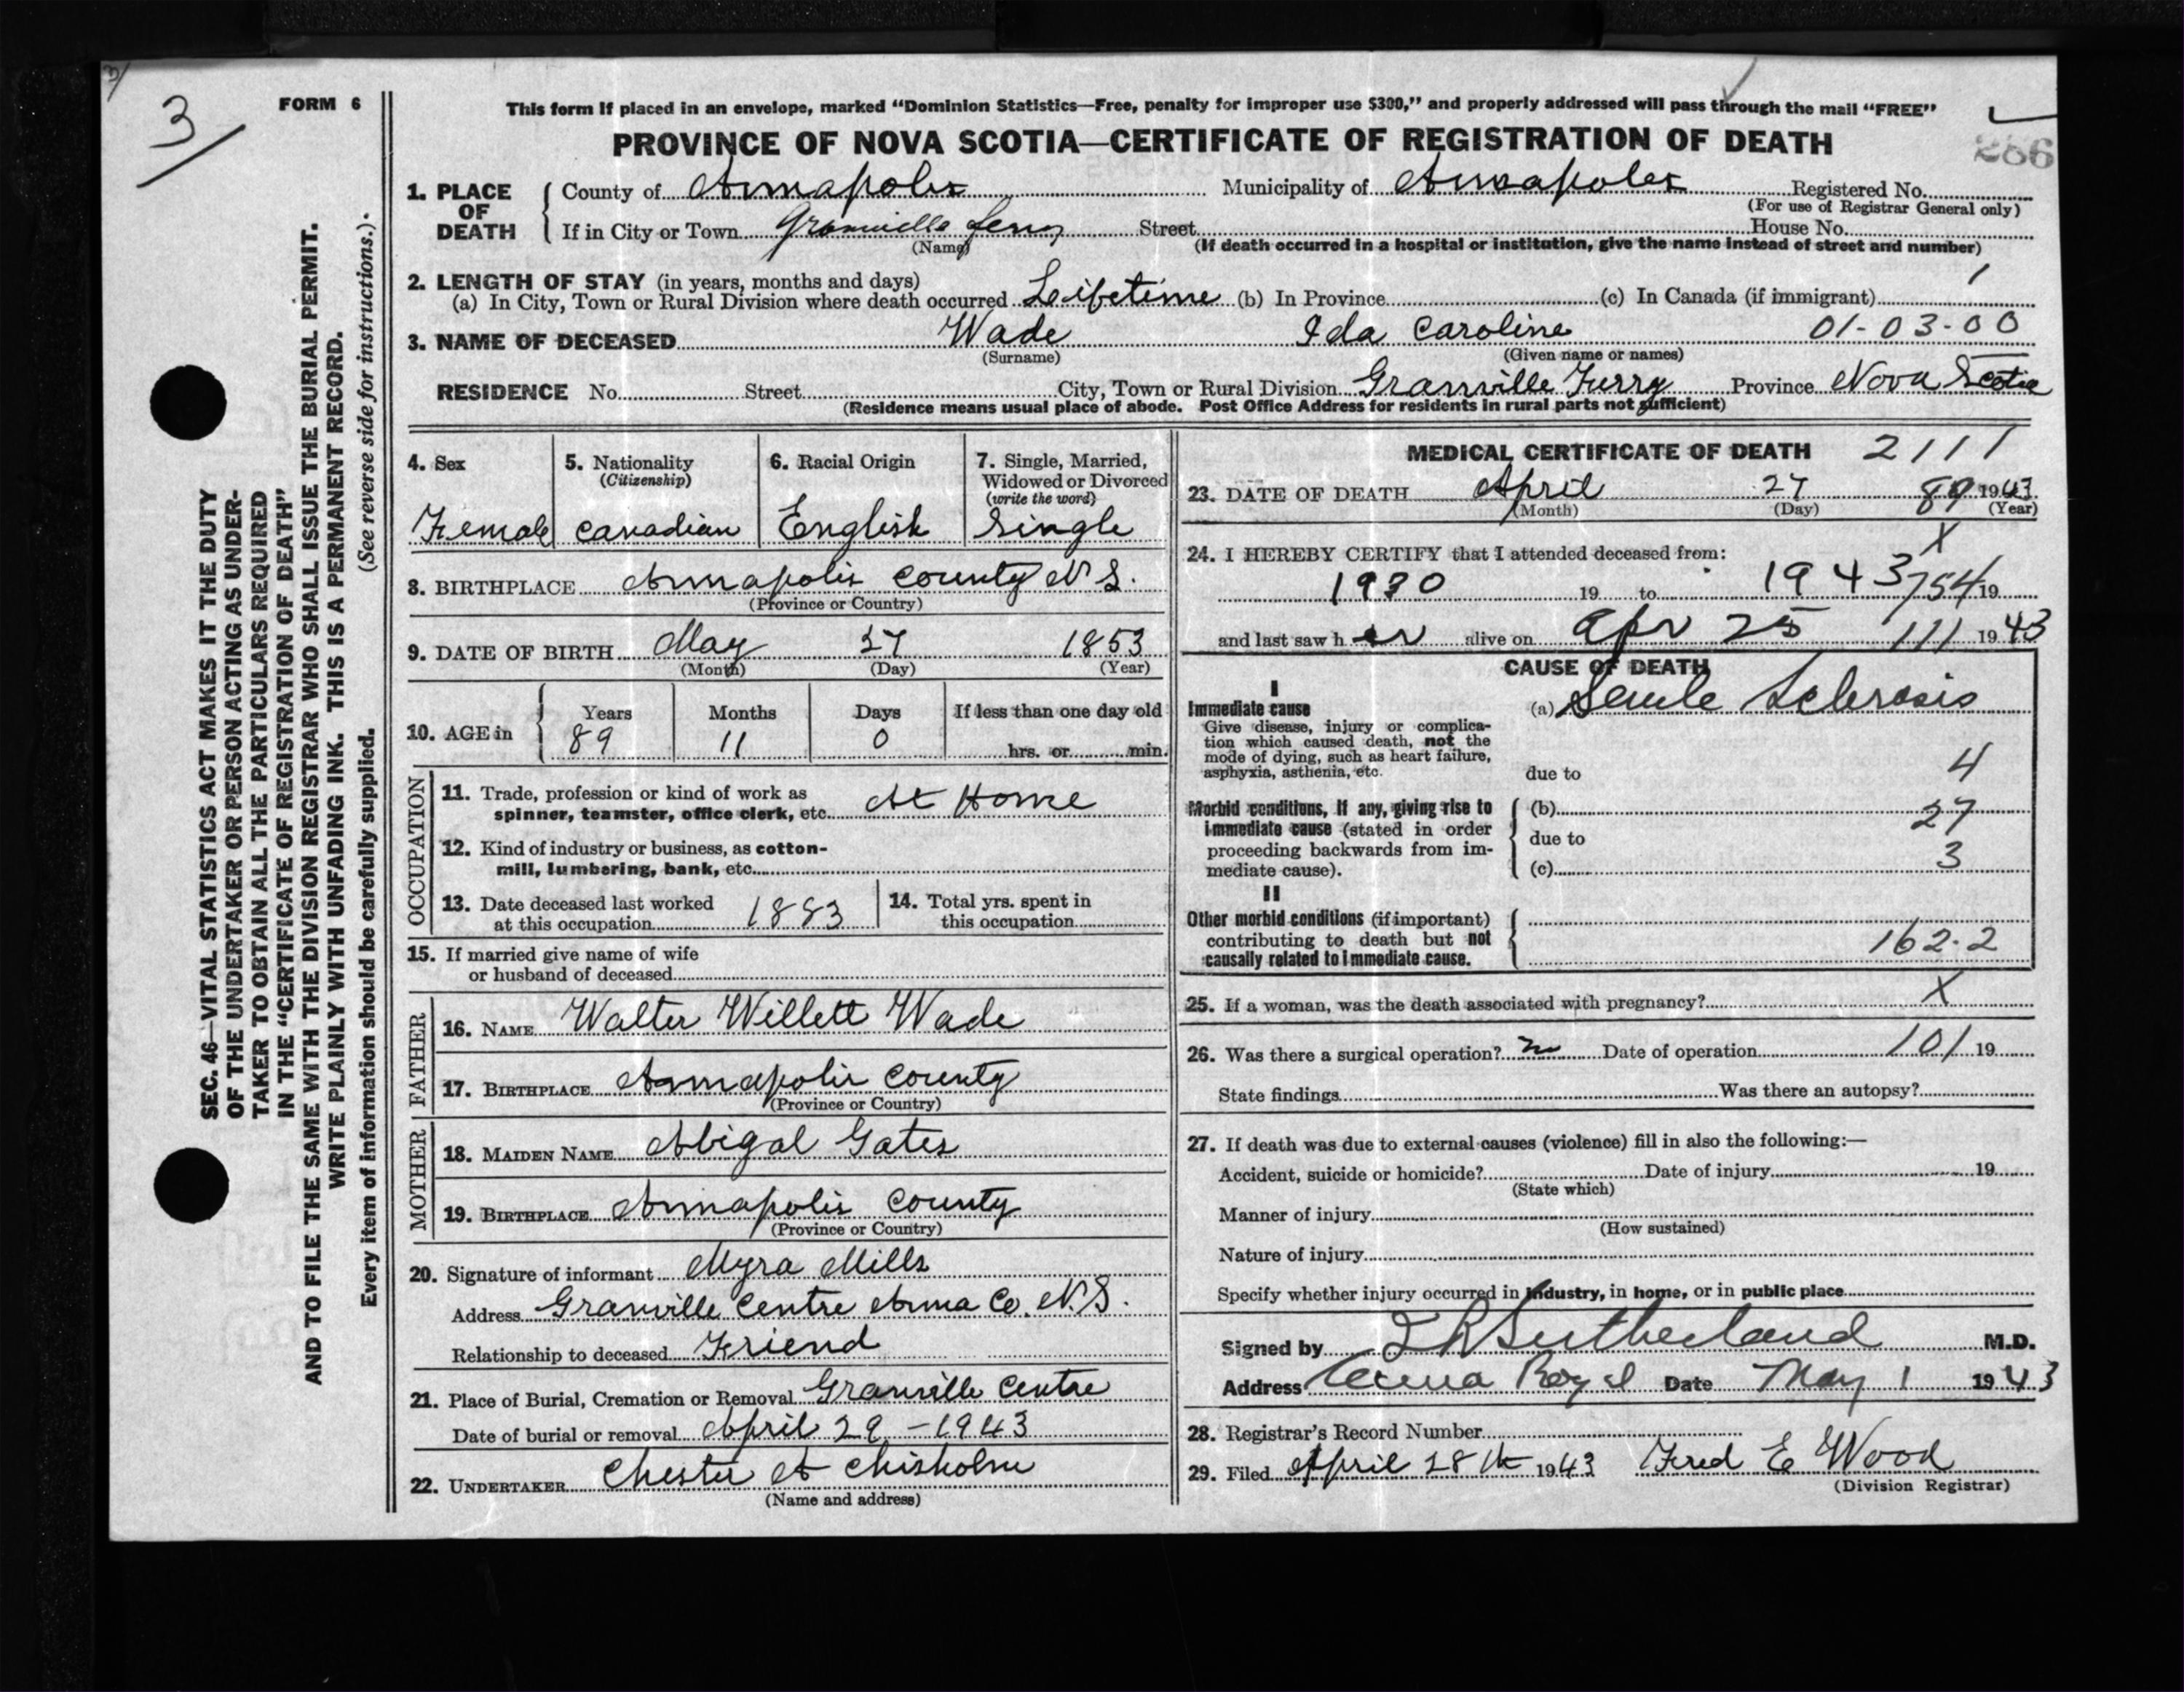 3/
3
FORM 6
This form if placed in an envelope, marked “Dominion Statistics—Free, penalty for improper use $300,” and properly addressed will pass through the mail “FREE”
PROVINCE OF NOVA SCOTIA—CERTIFICATE OF REGISTRATION OF DEATH
286
1. PLACE OF DEATH { County of Annapolis Municipality of Annapolis Registered No.
(For use of Registrar General only)
If in City or Town Granville Ferry Street House No.
(Name) (If death occurred in a hospital or institution, give the name instead of street and number)
2. LENGTH OF STAY (in years, months and days) 1
(a) In City, Town or Rural Division where death occurred Leifetime (b) In Province (c) In Canada (if immigrant)
3. NAME OF DECEASED Wade Ida Caroline 01-03-00
(Surname) (Given name or names)
RESIDENCE No. Street City, Town or Rural Division Granville Furry Province Nova Scotia
(Residence means usual place of abode. Post Office Address for residents in rural parts not sufficient)
SEC. 46—VITAL STATISTICS ACT MAKES IT THE DUTY
OF THE UNDERTAKER OR PERSON ACTING AS UNDER-
TAKER TO OBTAIN ALL THE PARTICULARS REQUIRED
IN THE “CERTIFICATE OF REGISTRATION OF DEATH”
AND TO FILE THE SAME WITH THE DIVISION REGISTRAR WHO SHALL ISSUE THE BURIAL PERMIT.
WRITE PLAINLY WITH UNFADING INK. THIS IS A PERMANENT RECORD.
Every item of information should be carefully supplied. (See reverse side for instructions.)
4. Sex 5. Nationality 6. Racial Origin 7. Single, Married,
(Citizenship) Widowed or Divorced
(write the word)
Female Canadian English Single
8. BIRTHPLACE Annapolis County N S.
(Province or Country)
9. DATE OF BIRTH May 27 1853
(Month) (Day) (Year)
10. AGE in { Years Months Days If less than one day old
89 11 0 hrs. or min.
OCCUPATION
11. Trade, profession or kind of work as
spinner, teamster, office clerk, etc. At Home
12. Kind of industry or business, as cotton-
mill, lumbering, bank, etc.
13. Date deceased last worked 14. Total yrs. spent in
at this occupation 1883 this occupation
15. If married give name of wife
or husband of deceased
FATHER
16. NAME Walter Willett Wade
17. BIRTHPLACE Annapolis County
(Province or Country)
MOTHER
18. MAIDEN NAME Abigal Gates
19. BIRTHPLACE Annapolis County
(Province or Country)
20. Signature of informant Myra Mills
Address Granville Centre Anna Co. N.S.
Relationship to deceased Friend
21. Place of Burial, Cremation or Removal Granville Centre
Date of burial or removal April 29 - 1943
22. UNDERTAKER Chester A Chisholm
(Name and address)
MEDICAL CERTIFICATE OF DEATH 2111
23. DATE OF DEATH April 27 89 1943
(Month) (Day) (Year)
X
24. I HEREBY CERTIFY that I attended deceased from:
1930 19 to 1943 754 19
and last saw h er alive on Apr 25 111 1943
CAUSE OF DEATH
I
Immediate cause (a) Senile Sclerosis
Give disease, injury or complica-
tion which caused death, not the
mode of dying, such as heart failure,
asphyxia, asthenia, etc. due to 4
Morbid conditions, if any, giving rise to { (b) 27
immediate cause (stated in order due to
proceeding backwards from im- 3
mediate cause). (c)
II
Other morbid conditions (if important)
contributing to death but not 162.2
causally related to immediate cause.
25. If a woman, was the death associated with pregnancy? X
26. Was there a surgical operation? no Date of operation 101 19
State findings Was there an autopsy?
27. If death was due to external causes (violence) fill in also the following:—
Accident, suicide or homicide? Date of injury 19
(State which)
Manner of injury
(How sustained)
Nature of injury
Specify whether injury occurred in industry, in home, or in public place
Signed by Sutherland M.D.
Address Anna Royal Date May 1 1943
28. Registrar's Record Number
29. Filed April 28th 1943 Fred E Wood
(Division Registrar)